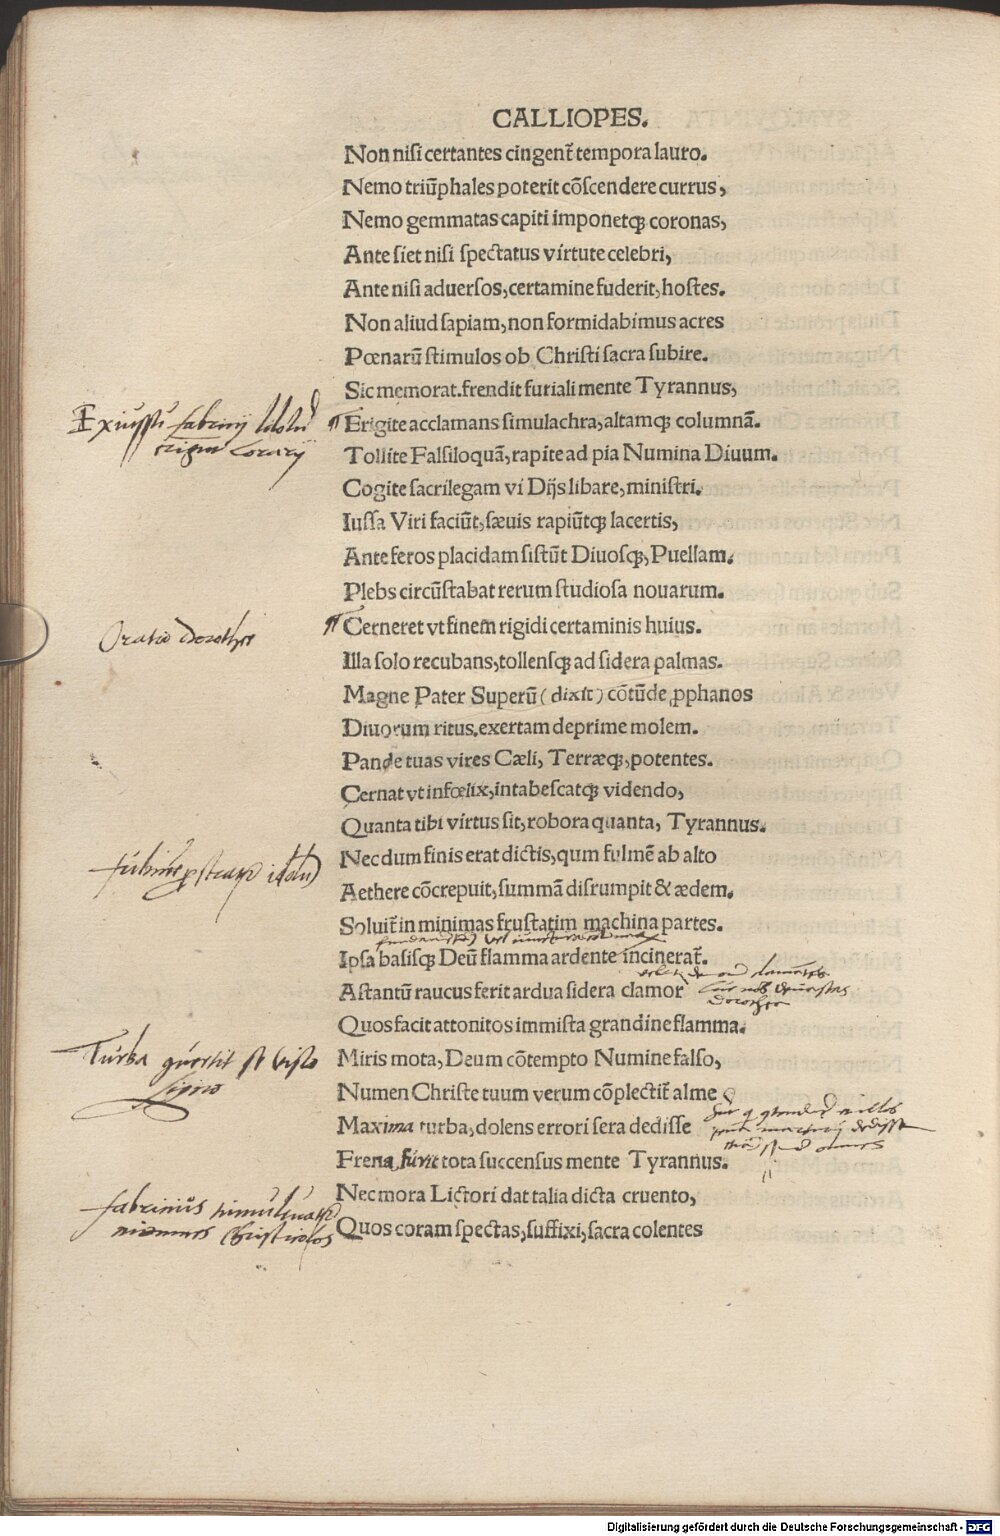 CALLIOPES.
Non nisi certantes cingent̃ tempora lauro.
Nemo triũphales poterit cõscendere currus,
Nemo gemmatas capiti imponetqꝫ coronas,
Ante siet nisi spectatus virtute celebri,
Ante nisi aduersos, certamine fuderit, hostes.
Non aliud sapiam, non formidabimus acres
Pœnarũ stimulos ob Christi sacra subire.
Sic memorat. frendit furiali mente Tyrannus,
Erigite acclamans simulachra, altamqꝫ columnã.
Tollite Falsiloquã, rapite ad pia Numina Diuum.
Cogite sacrilegam vi Dijs libare, ministri.
Iussa Viri faciũt, sæuis rapiũtqꝫ lacertis,
Ante feros placidam sistũt Diuosqꝫ, Puellam.
Plebs circũstabat rerum studiosa nouarum.
Oratio Dorothee
Cerneret vt finem rigidi certaminis huius.
Illa solo recubans, tollensqꝫ ad sidera palmas.
Magne Pater Superũ (dixit) cõtũde ꝓphanos
Diuorum ritus. exertam deprime molem.
Pande tuas vires Cæli, Terræqꝫ, potentes.
Cernat vt infœlix, intabescatqꝫ videndo,
Quanta tibi virtus sit, robora quanta, Tyrannus.
Nec dum finis erat dictis, qum fulmẽ ab alto
Aethere cõcrepuit, summã disrumpit & ædem.
Soluit̃ in minimas frustatim machina partes.
Ipsa basisqꝫ Deũ flamma ardente incinerat̃.
Astantũ raucus ferit ardua sidera clamor
Quos facit attonitos immista grandine flamma.
Turba
Miris mota, Deum cõtempto Numine falso,
Numen Christe tuum verum cõplectit̃ alme
Maxima turba, dolens errori sera dedisse
Frena, furit tota succensus mente Tyrannus.
Nec mora Lictori dat talia dicta cruento,
Quos coram spectas, suffixi, sacra colentes
Digitalisierung gefördert durch die Deutsche Forschungsgemeinschaft - DFG